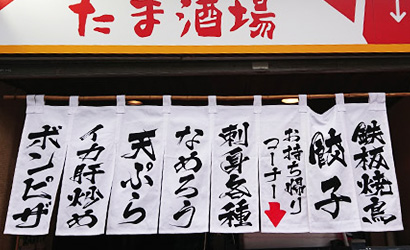 たま酒場
鉄板焼鳥
餃子
お持ち帰り
コーナー
刺身各種
なめろう
天ぷら
イカ肝炒め
ボンピザ